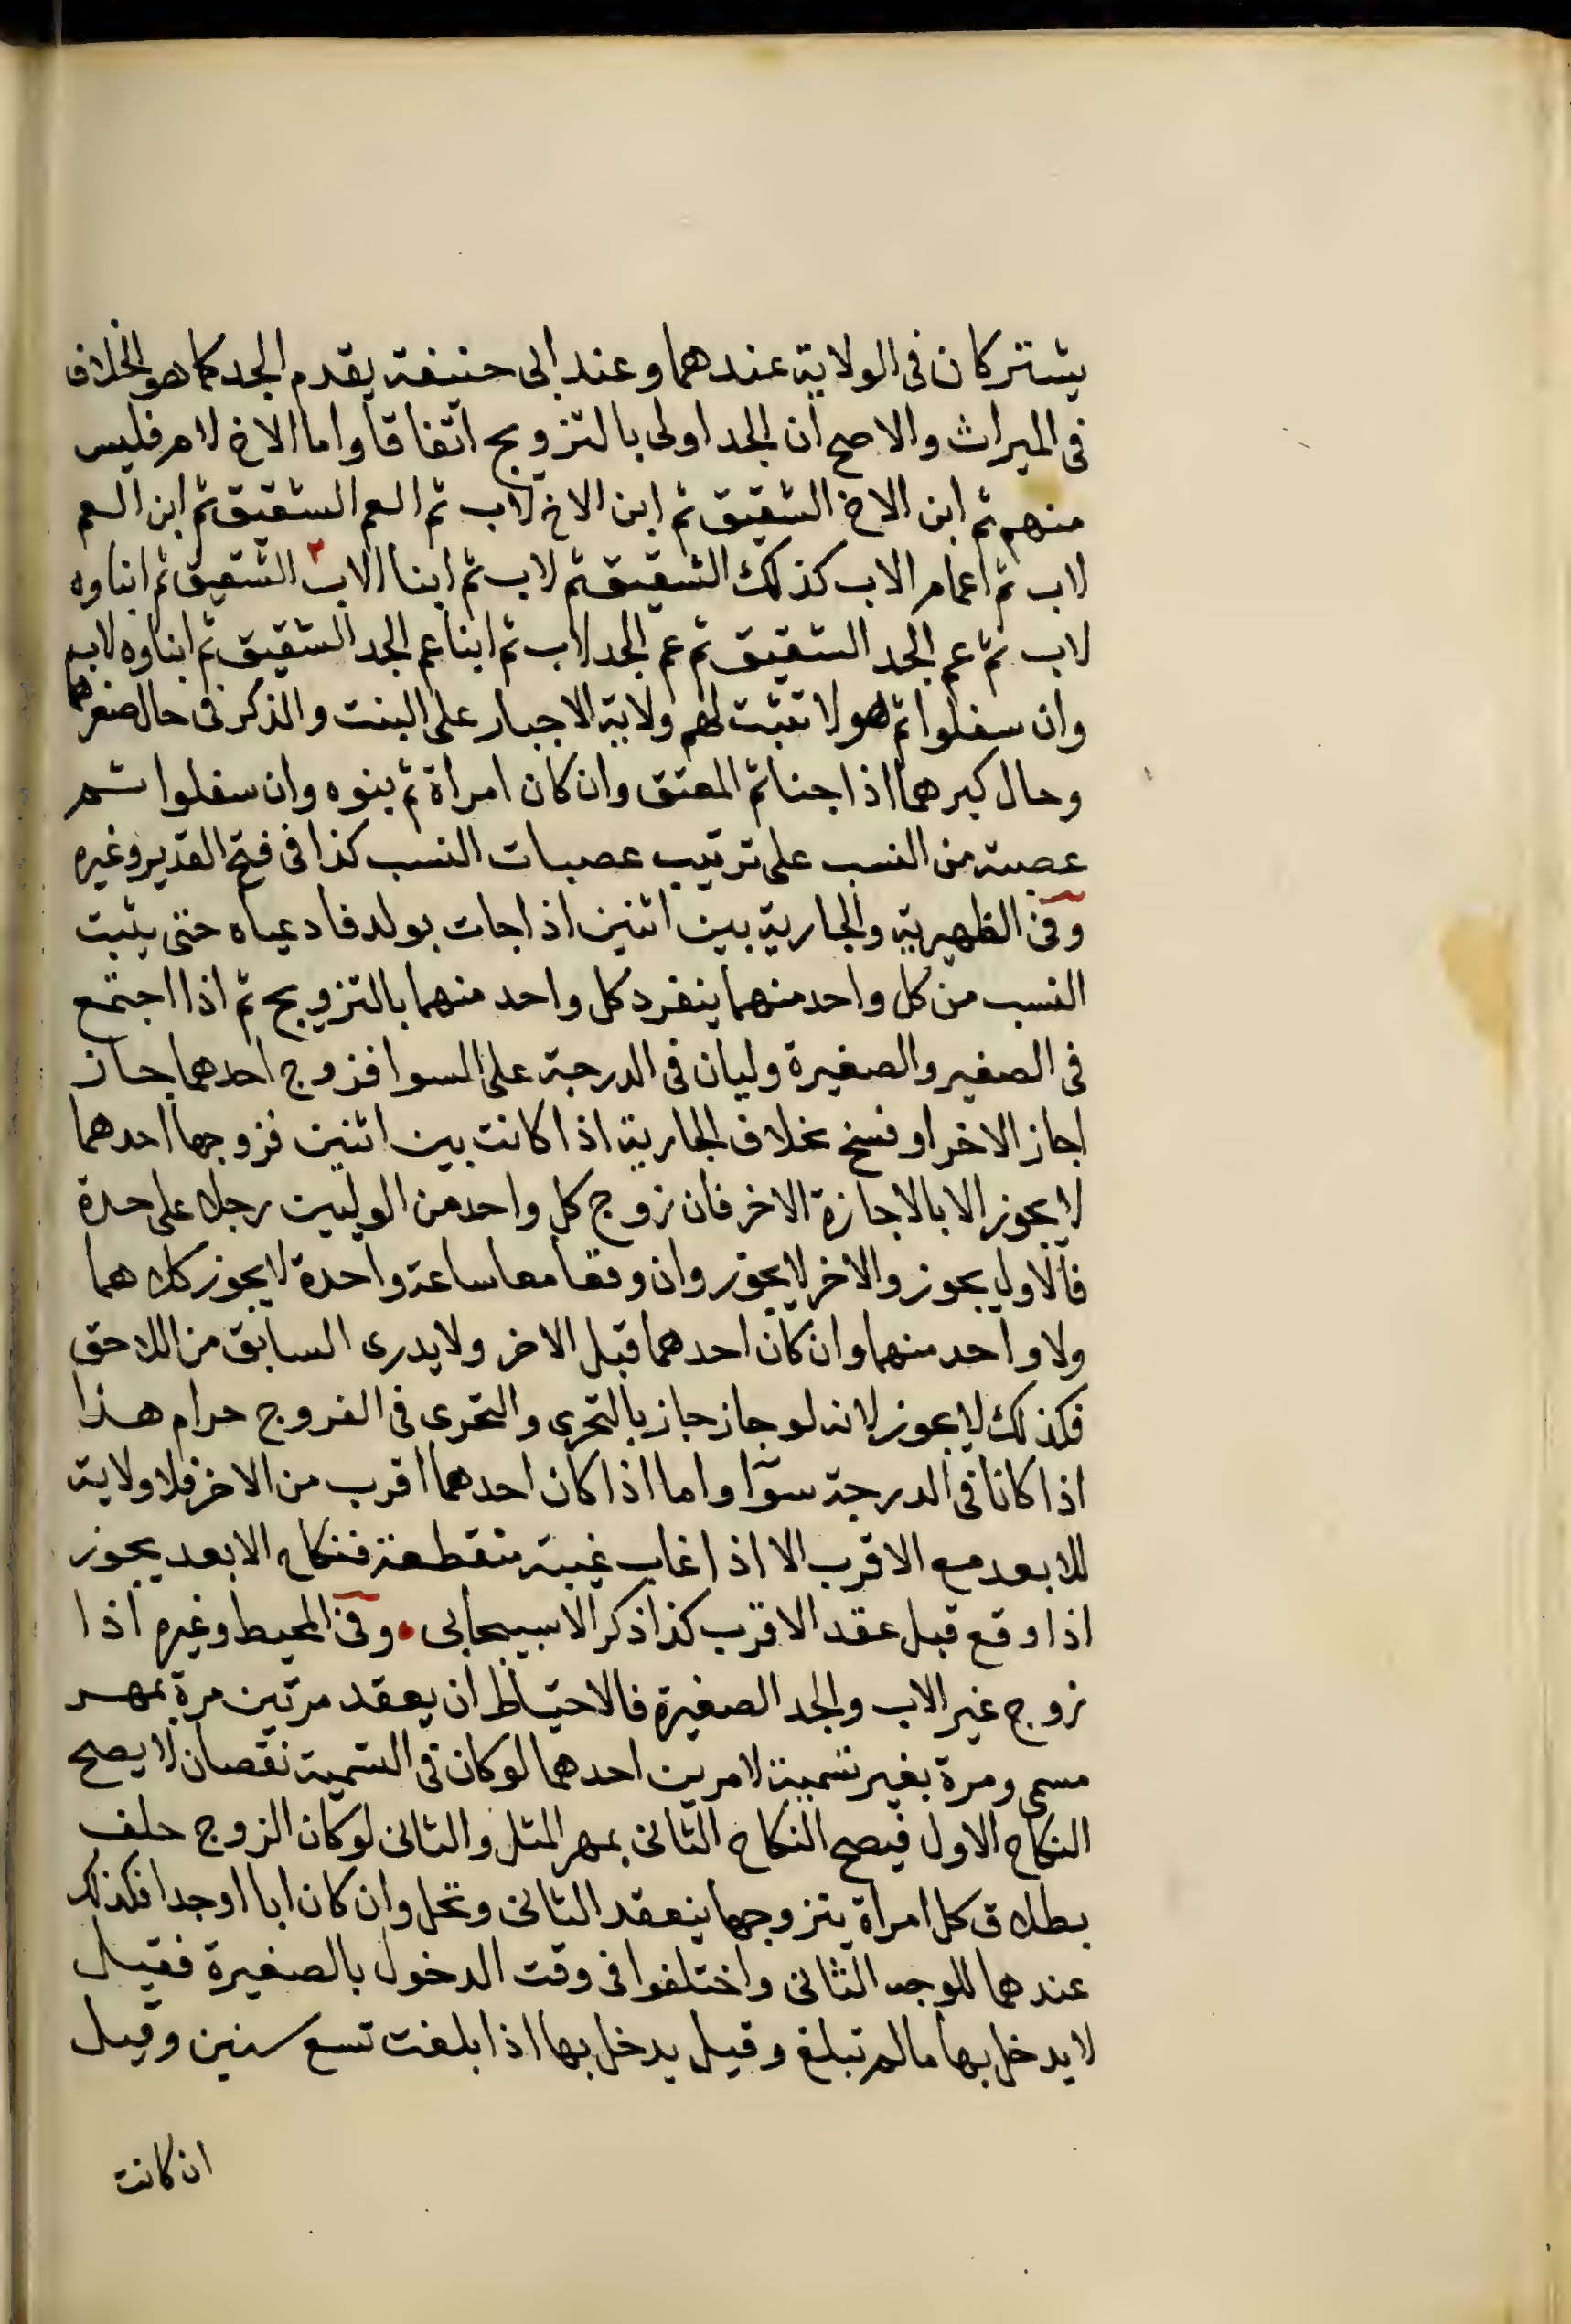 يشتركان فى الولاية عندهما وعند ابى حنيفة يقدم الجد كما هو الخلاف
فى الميراث والاصح ان الجد اولى بالتزويج اتفاقا واما الاخ لام فليس
منهم ثم ابن الاخ الشقيق ثم ابن الاخ لاب ثم العم الشقيق ثم ابن العم
لاب ثم اعمام الاب كذلك الشقيق ثم لاب ثم ابنا الاب ٢ الشقيق ثم ابناوه
لاب ثم عم الجد الشقيق ثم عم الجد لاب ثم ابنا عم الجد الشقيق ثم ابناوه لاب
وان سفلوا ثم هولا تثبت لهم ولاية الاجبار على البنت والذكر فى حال صغرهما
وحال كبرهما اذا جنا ثم المعتق وان كان امراة ثم بنوه وان سفلوا ثم
عصبته من النسب على ترتيب عصبات النسب كذا فى فتح القدير وغيره
وفى الظهيرية والجارية بين اثنين اذا جات بولد فادعياه حتى يثبت
النسب من كل واحد منهما ينفرد كل واحد منهما بالتزويج ثم اذا اجتمع
فى الصغير والصغيرة وليان فى الدرجة على السوا فزوج احدهما جاز
اجاز الاخر او فسخ بخلاف الجارية اذا كانت بين اثنين فزوجها احدهما
لا يجوز الا بالاجازة الاخر فان زوج كل واحد من الوليين رجلا على حدة
فالاول يجوز والاخر لا يجوز وان وقعا معا ساعة واحدة لا يجوز كلاهما
ولا واحد منهما وان كان احدهما قبل الاخر ولا يدرى السابق من اللاحق
فكذلك لا يجوز لانه لو جاز جاز بالتحرى والتحرى فى الفروج حرام هذا
اذا كانا فى الدرجة سوآ واما اذا كان احدهما اقرب من الاخر فلا ولاية
للابعد مع الاقرب الا اذا غاب غيبة منقطعة فنكاح الابعد يجوز
اذا وقع قبل عقد الاقرب كذا ذكر الاسبيجابى • وفى المحيط وغيره اذا
زوج غير الاب والجد الصغيرة فالاحتياط ان يعقد مرتين مرة بمهر
مسمى ومرة بغير تسمية لامرين احدهما لو كان فى التسمية نقصان لا يصح
النكاح الاول فيصح النكاح الثانى بمهر المثل والثانى لو كان الزوج حلف
بطلاق كل امراة يتزوجها ينعقد الثانى وتحل وان كان ابا او جدا فكذلك
عندهما للوجه الثانى واختلفوا فى وقت الدخول بالصغيرة فقيل
لا يدخل بها مالم تبلغ وقيل يدخل بها اذا بلغت تسع سنين وقيل
ان كانت